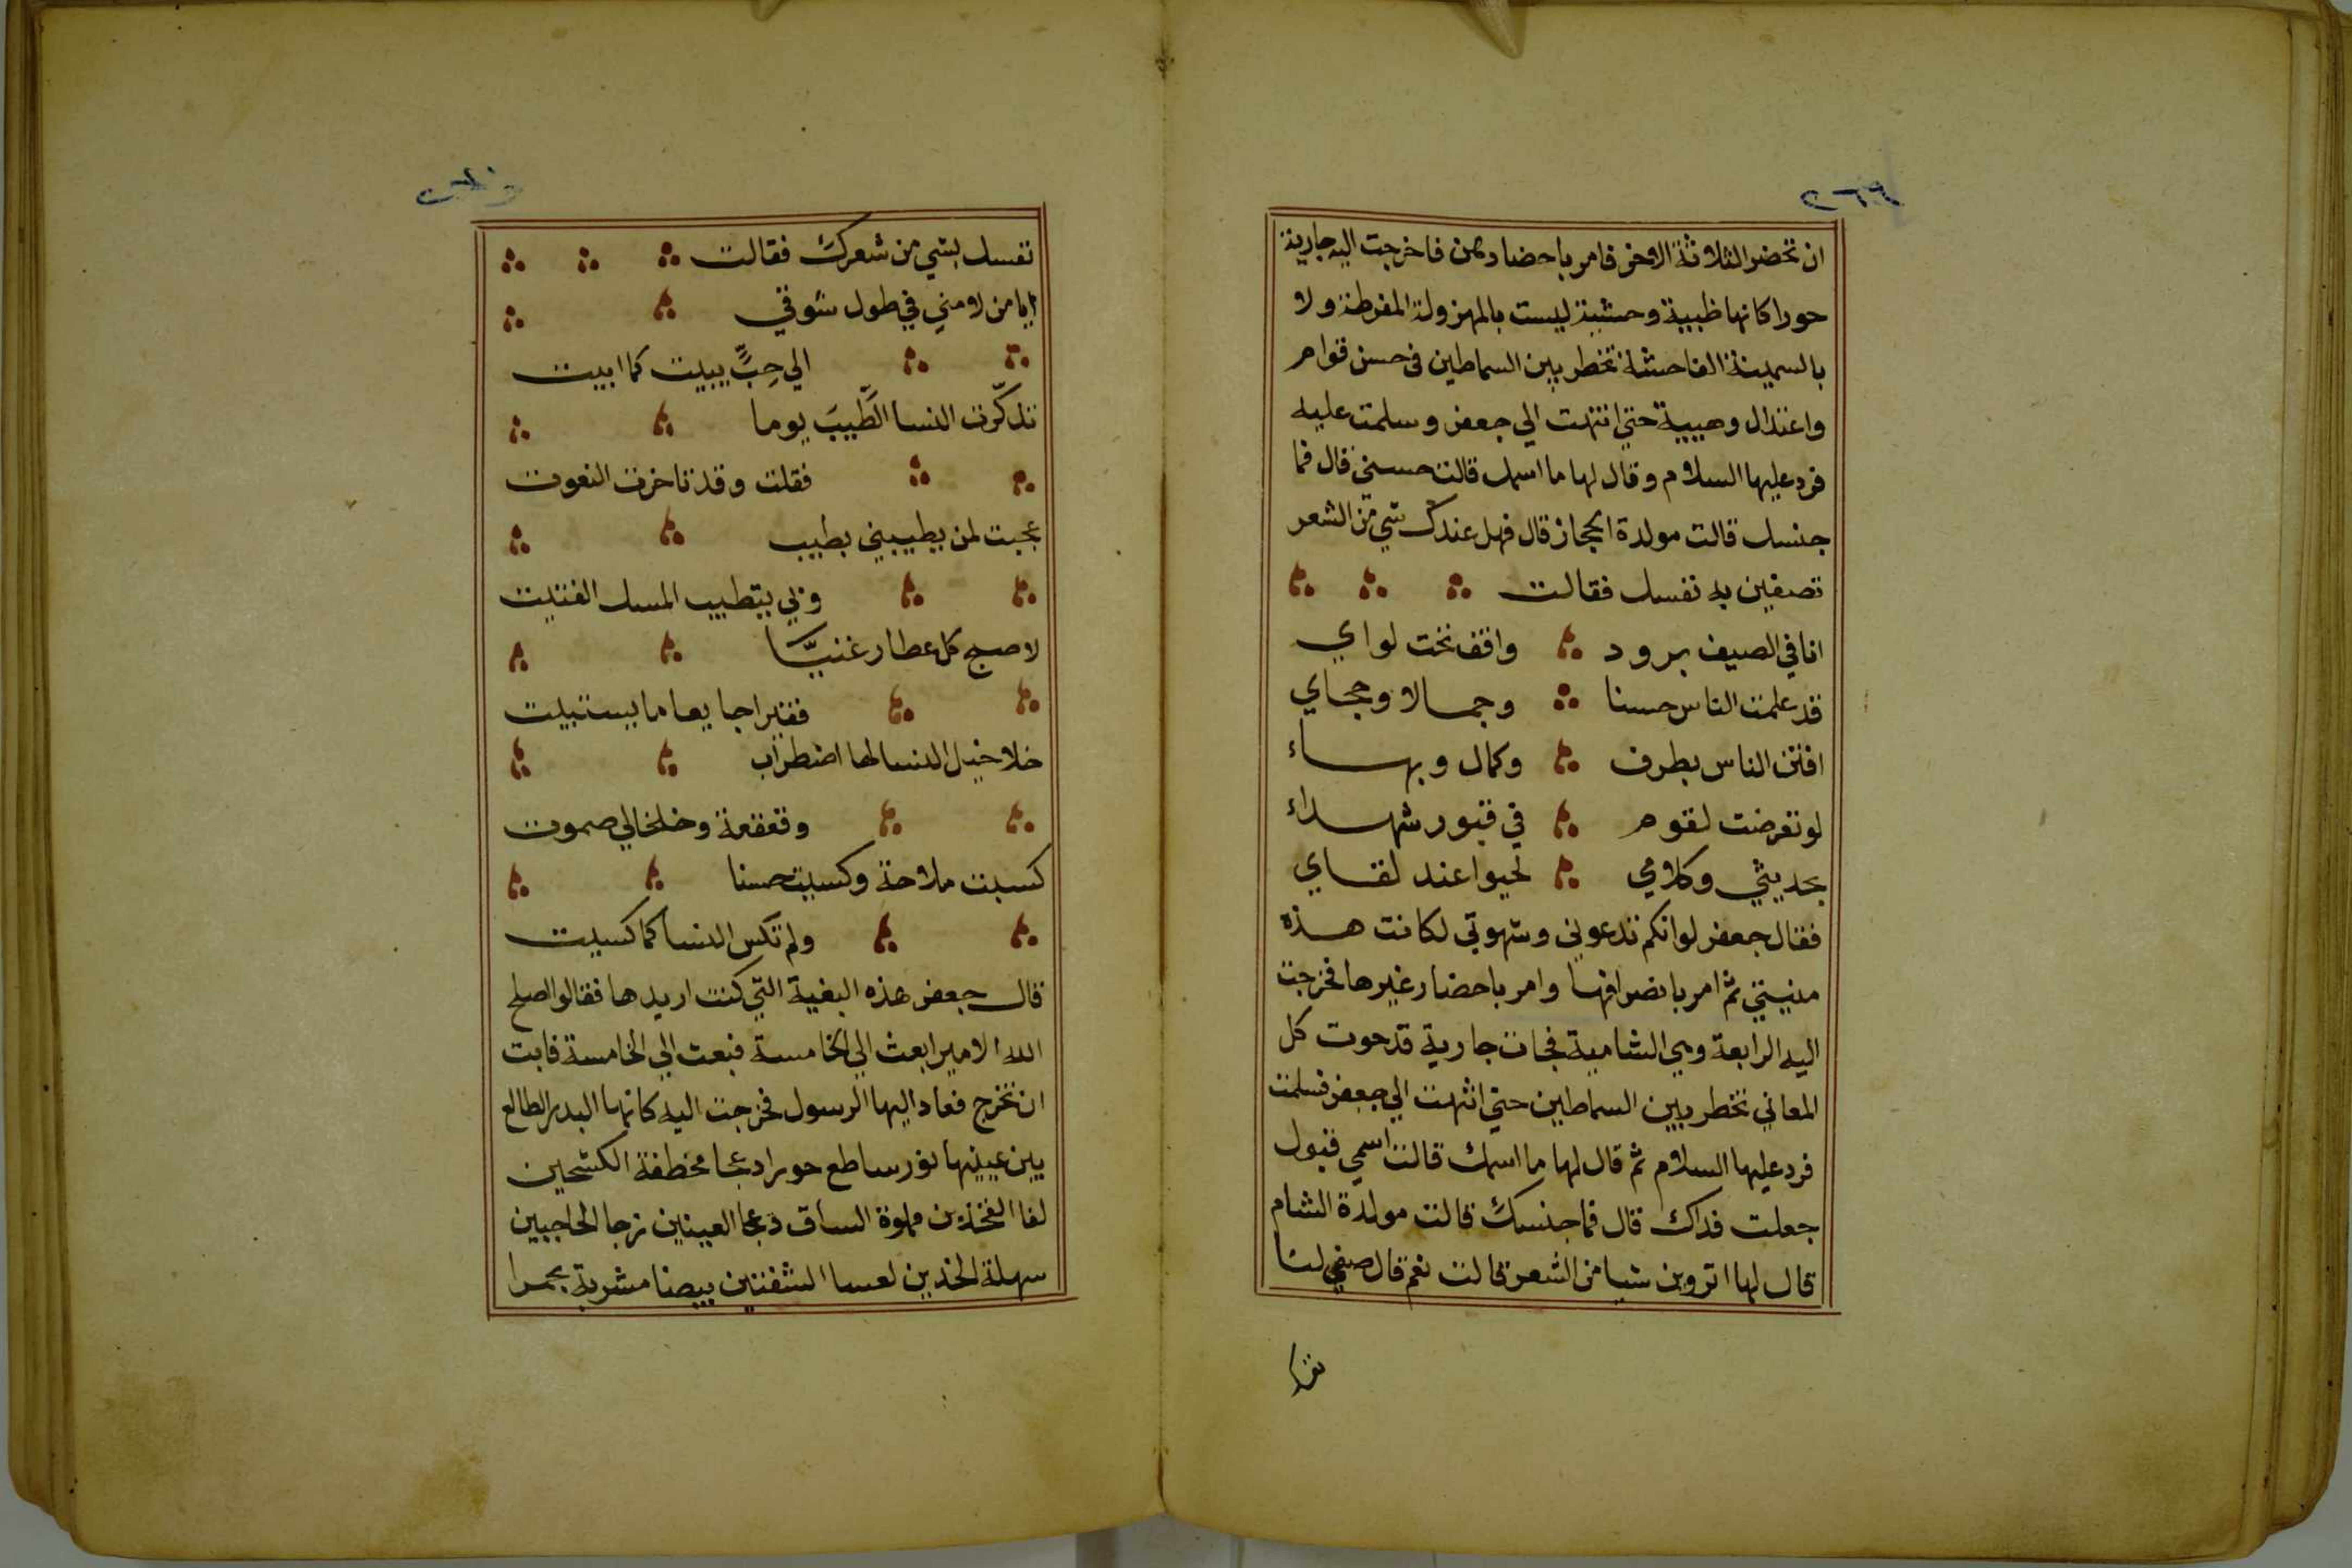 ٢٦٦
ان تحضر الثلاثة الاخر فامر باحضارهن فاخرجت اليه جارية
حورا كانها ظبية وحشية ليست بالمهزولة المفرطة ولا
بالسمينة الفاحشة تخطر بين السماطين في حسن قوام
واعتدال وهيبة حتي انتهت الي جعفر وسلمت عليه
فرد عليها السلام وقال لها ما اسمك قالت حسني قال فما
جنسك قالت مولدة الحجاز قال فهل عندك شي من الشعر
تصفين به نفسك فقالت
انا في الصيف برود واقف تحت لواي
قد علمت الناس حسنا وجمالا وحجاي
افتن الناس بطرف وكمال وبهاء
لو تعرضت لقوم في قبور شهداء
بحديثي وكلامي لحيوا عند لقاي
فقال جعفر لوانكم تدعوني وشهوتي لكانت هذه
منيتي ثم امر بانصرافها وامر باحضار غيرها فخرجت
اليه الرابعة وهي الشامية فجات جارية قد حوت كل
المعاني تخطر بين السماطين حتي انتهت الي جعفر فسلمت
فرد عليها السلام ثم قال لها ما اسمك قالت اسمي قبول
جعلت فداك قال فما جنسك قالت مولدة الشام
قال لها اتروين شيا من الشعر قالت نعم قال صفي لنا
نفسك بشي من شعرك فقالت
ايا من لامني في طول شوقي
الي حِبٍّ يبيت كما ابيت
تذكّرت النسا الطَّيبَ يوما
فقلت وقد تاخرت النعوت
عجبت لمن يطيبني بطيب
وبي يتطيب المسك الفتيت
لاصبح كل عطار غنيًّا
فقيرا جايعا ما يستبيت
خلاخيل النسا لها اضطراب
وقعقعة وخلخالي صموت
كسبت ملاحة وكسيت حسنا
ولم تكس النسا كما كسيت
قال جعفر هذه البغية التي كنت اريدها فقالوا اصلح
الله الامير ابعث الي الخامسة فبعث الي الخامسة فابت
ان تخرج فعاد اليها الرسول فخرجت اليه كانها البدر الطالع
بين عينيها نور ساطع حورا دعجا مخطفة الكشحين
لفا الفخذين مملوة الساق دعجا العينين زجا الحاجبين
سهلة الخدين لعسا الشفتين بيضا مشربة بحمرا